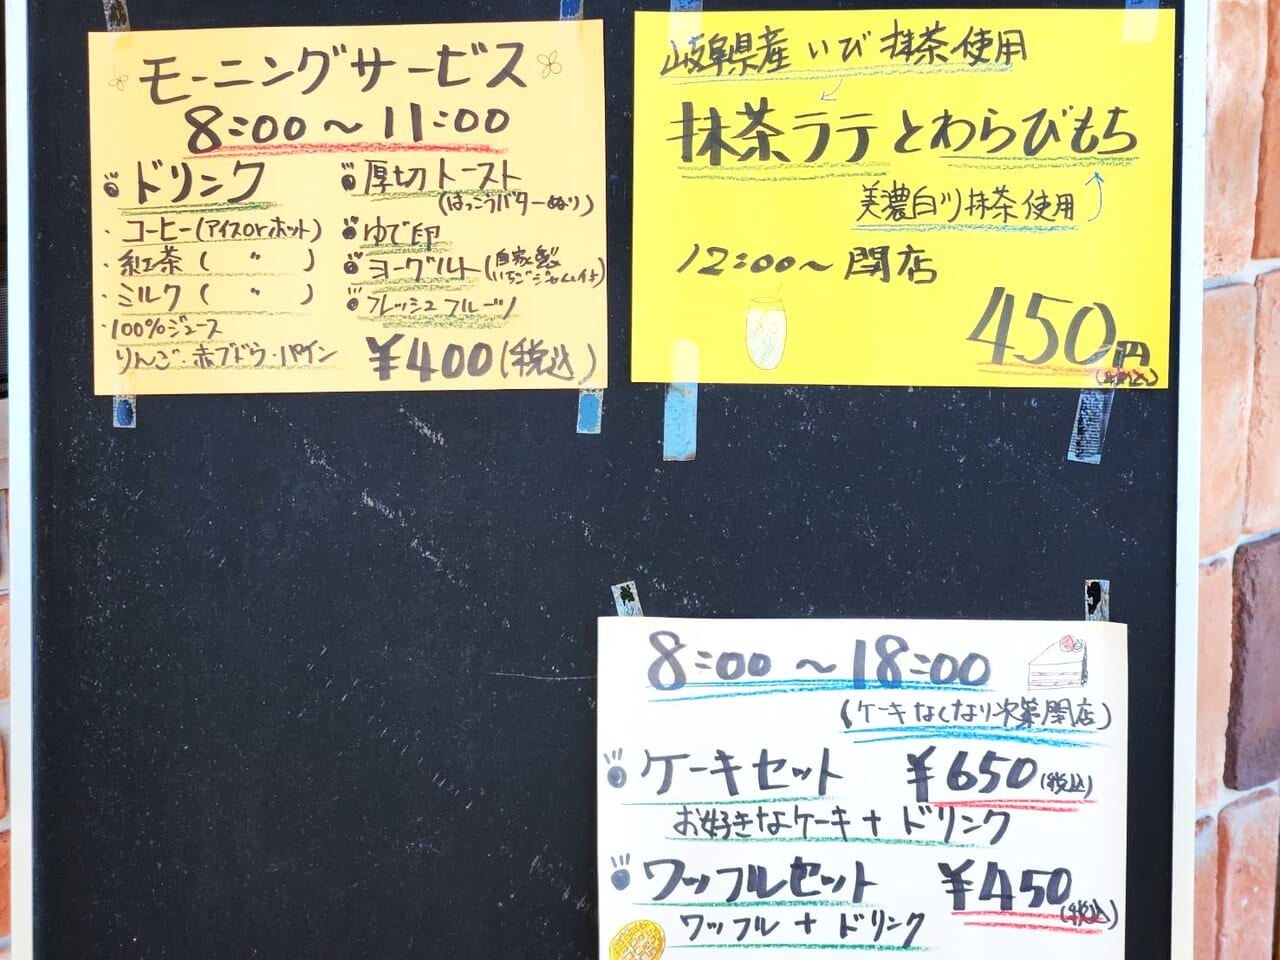 モーニングサービス
8:00〜11:00
ドリンク
・コーヒー(アイスorホット)
・紅茶( 〃 )
・ミルク( 〃 )
・100%ジュース
りんご・赤ブドウ・パイン
厚切トースト
(はっこうバターぬり)
ゆで卵
ヨーグルト(自家製いちごジャム付)
フレッシュフルーツ
¥400(税込)
岐阜県産いび抹茶使用
抹茶ラテとわらびもち
美濃白川抹茶使用
12:00〜閉店
450円
(税込)
8:00〜18:00
(ケーキなくなり次第閉店)
ケーキセット ¥650(税込)
お好きなケーキ+ドリンク
ワッフルセット ¥450(税込)
ワッフル+ドリンク